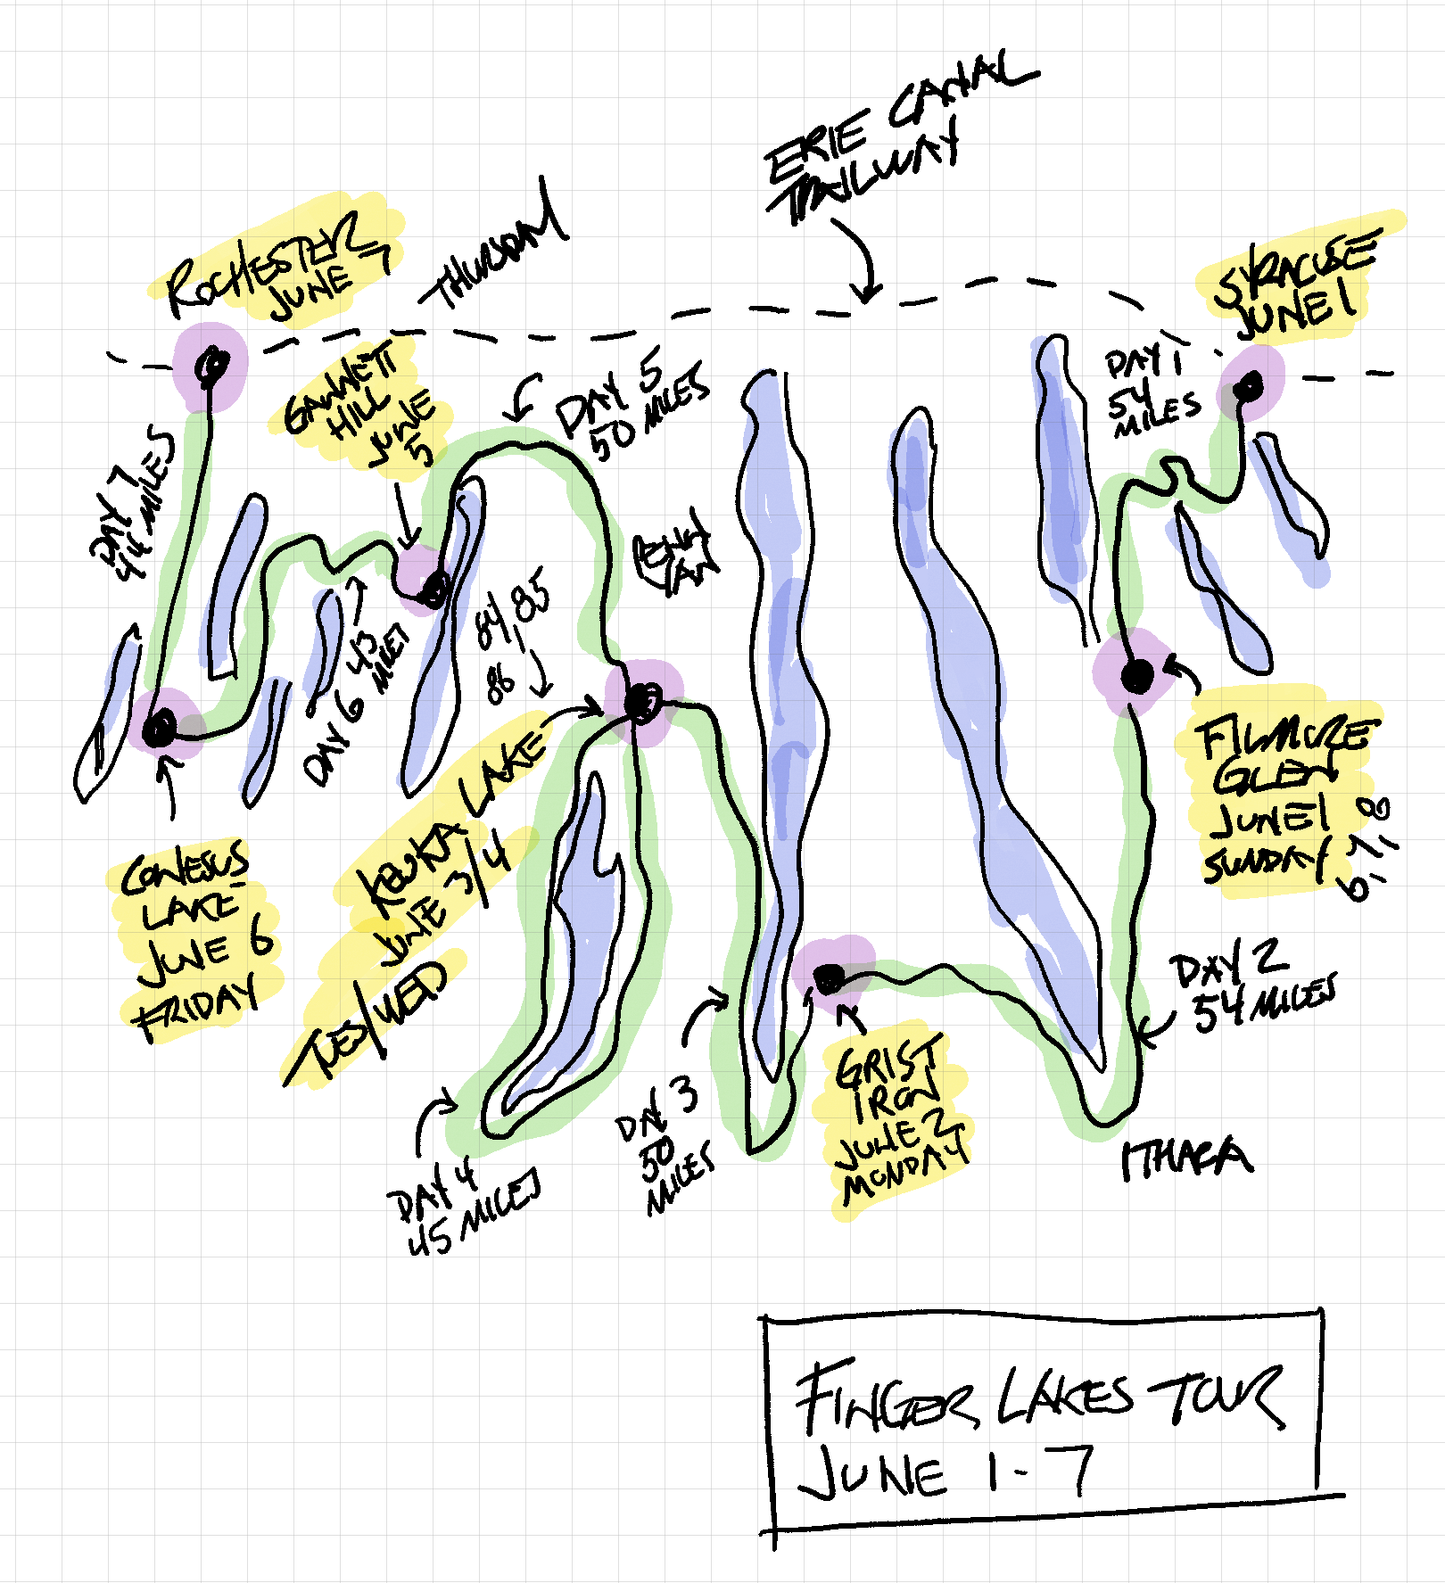 ERIE CANAL
TRAILWAY
ROCHESTER
JUNE 7
THURSDAY
SYRACUSE
JUNE 1
GANNETT
HILL
JUNE
5
DAY 5
50 MILES
DAY 1
54
MILES
DAY 7
44 MILES
PENN
YAN
84, 85
86
DAY 6 43
MILES
KEUKA LAKE
JUNE 3/4
TUES/WED
FILMORE
GLEN
JUNE 1
SUNDAY
6, 7, 8
CONESUS
LAKE
JUNE 6
FRIDAY
DAY 2
54 MILES
GRIST
IRON
JUNE 2
MONDAY
DAY 3
50
MILES
ITHACA
DAY 4
45 MILES
FINGER LAKES TOUR
JUNE 1-7